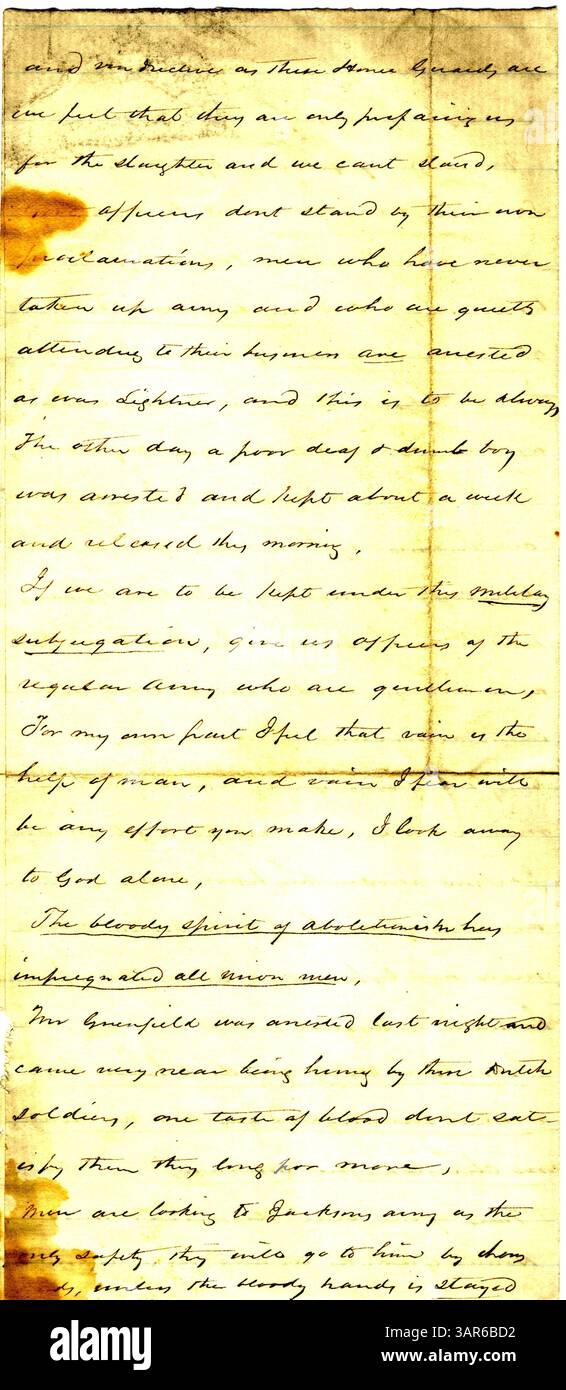 and vindictive as these Home Guards are
we feel that they are only preparing us
for the slaughter and we cant stand,
officers dont stand by their own
proclamations, men who have never
taken up arms and who are quietly
attending to their business are arrested
as was Lightner, and this is to be always
The other day a poor deaf & dumb boy
was arrested and kept about a week
and released this morning,
If we are to be kept under this military
subjugation, give us officers of the
regular army who are gentlemen,
For my own part I feel that vain is the
help of man, and vain I fear will
be any effort you make, I look away
to God alone,
The bloody spirit of abolitionism has
impregnated all union men,
Mr Greenfield was arrested last night and
came very near being hung by these Dutch
soldiers, one taste of blood dont sat-
isfy them they long for more,
Men are looking to Jacksons army as the
only safety, they will go to him by thous
ands, unless the bloody hands is stayed
alamy
Image ID: 3AR6BD2
www.alamy.com